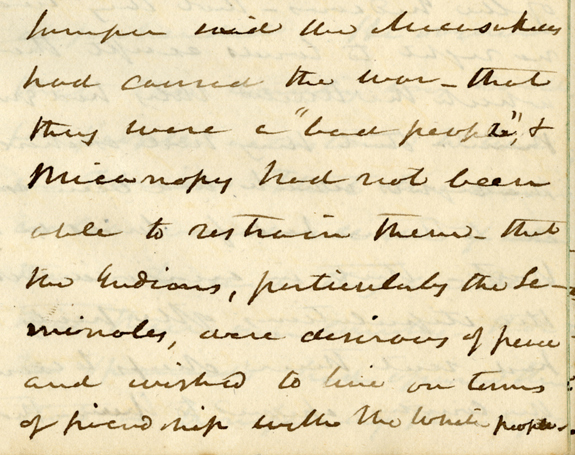 Jumper said the Micasukies
had caused the war - that
they were a "bad people", &
Micanopy had not been
able to restrain them - that
the Indians, particularly the Se-
minoles, were desirous of peace
and wished to live on terms
of friendship with the White people -